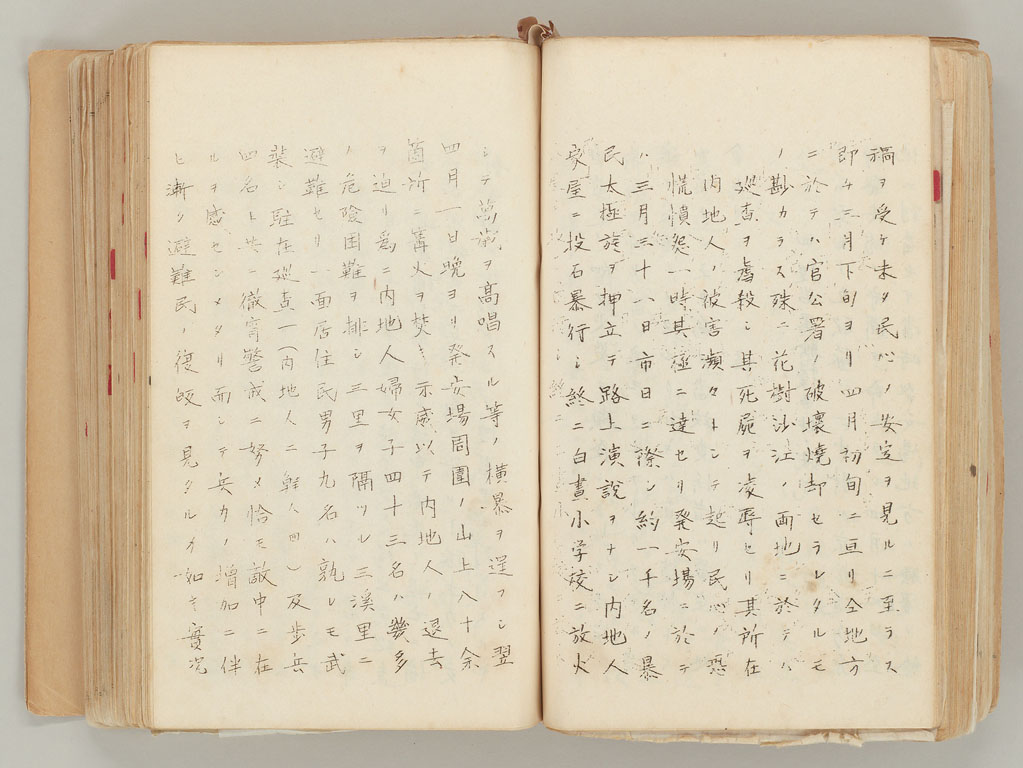 禍ヲ受ケ未タ民心ノ安定ヲ見ルニ至ラス
即チ三月下旬ヨリ四月初旬ニ亘リ仝地方
ニ於テハ官公署ノ破壊焼却セラレタルモ
ノ尠カラス殊ニ花樹沙江ノ両地ニ於テハ
巡査ヲ虐殺シ其死屍ヲ凌辱セリ其所在
内地人ノ被害瀕々トシテ起リ民心ノ恐
慌憤怨一時其極ニ達セリ発安場ニ於テ
ハ三月三十八日市日ニ際シ約一千名ノ暴
民太極旗ヲ押立テ路上演説ヲナシ内地人
家屋ニ投石暴行シ終ニ白晝小学校ニ放火
シテ萬歳ヲ高唱スル等ノ横暴ヲ逞フシ翌
四月一日晩ヨリ発安場周圍ノ山上八十余
箇所ニ篝火ヲ焚キ示威以テ内地人ノ退去
ヲ迫リ為ニ内地人婦女子四十三名ハ幾多
ノ危険困難ヲ排シ三里ヲ隔ツル三溪里ニ
避難セリ一面居住民男子九名ハ孰レモ武
装シ駐在巡査一(内地人ニ鮮人四)及歩兵
四名ト共ニ徹宵警戒ニ努メ恰モ敵中ニ在
ルヲ感セシメタリ而シテ兵力ノ増加ニ伴
ヒ漸ク避難民ノ復皈ヲ見タルカ如キ實况